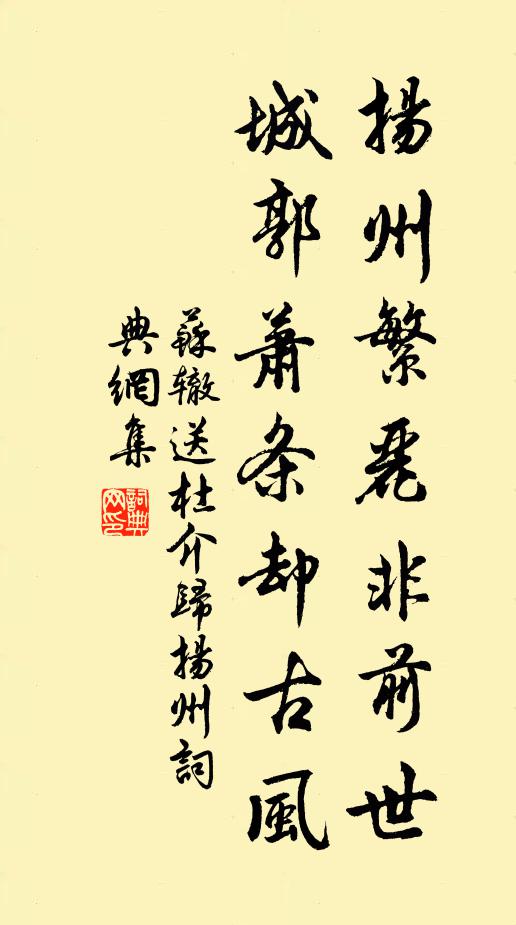 揚州繁麗非前世
城郭蕭条却古風
蘇辙送杜介歸揚州詞
典網集
詞典網印